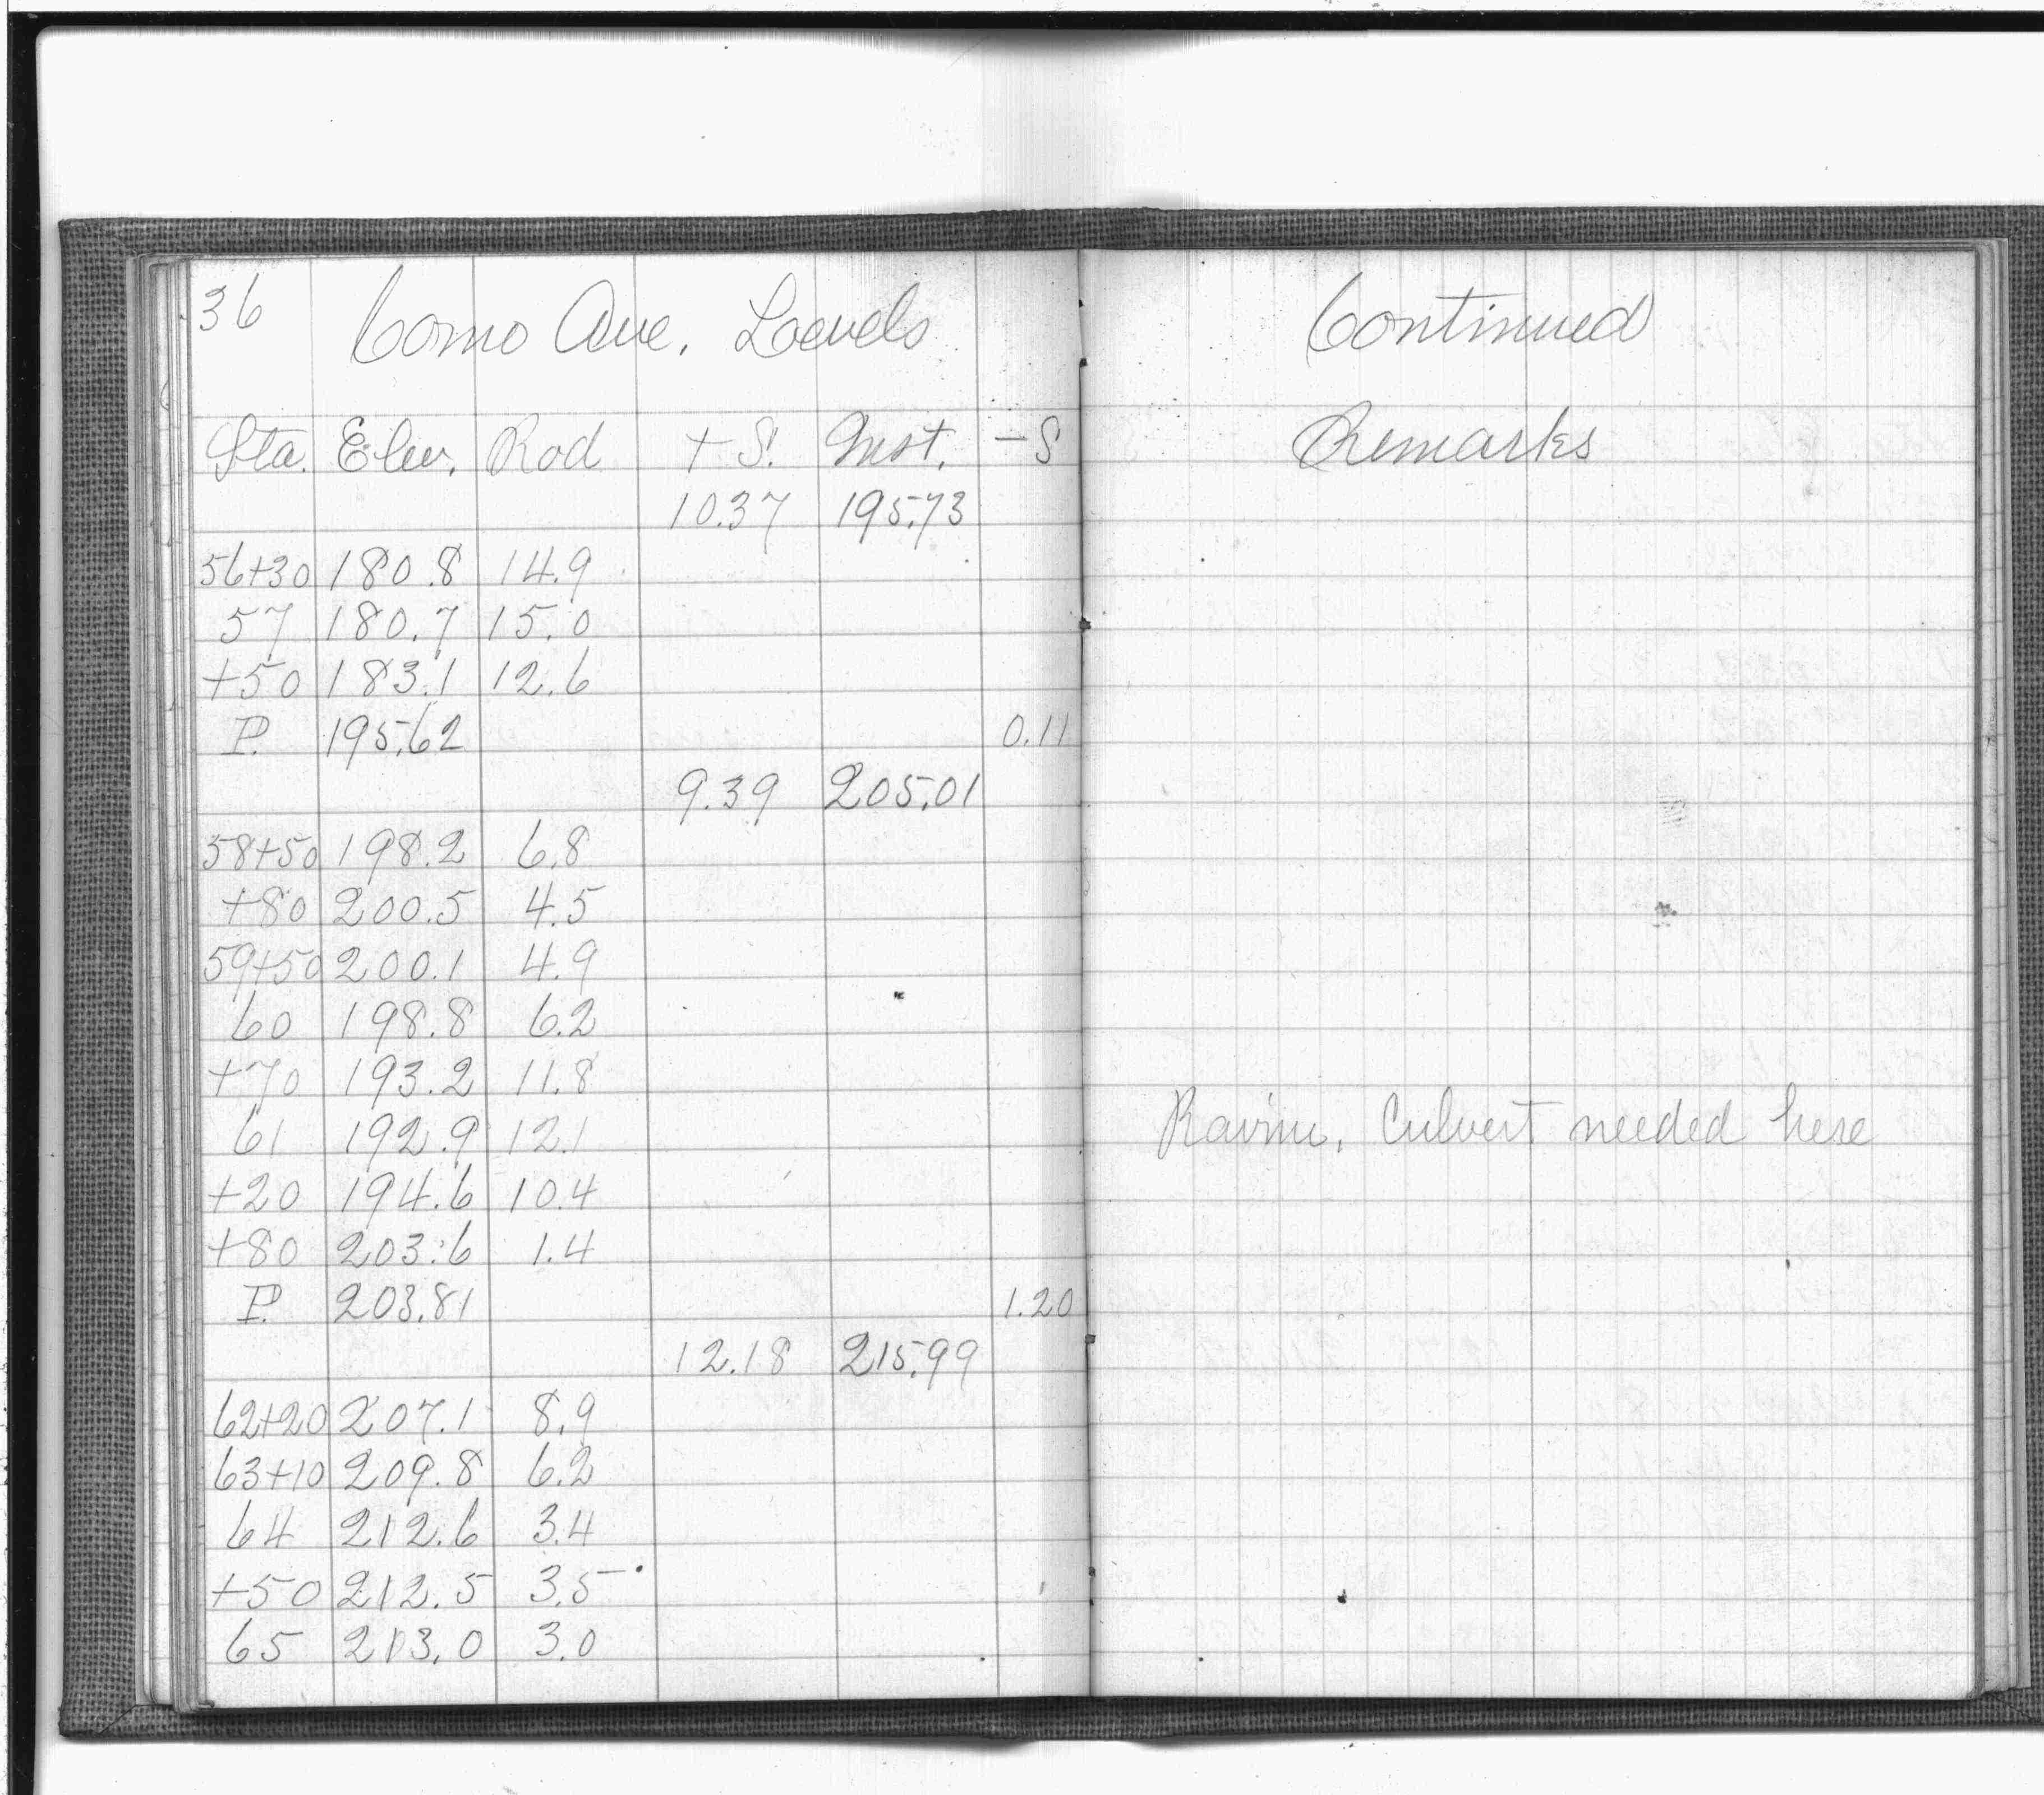 36 Como Ave. Levels Continued
Sta. Elev. Rod + S. Inst. - S Remarks
10.37 195.73
56+30 180.8 14.9
57 180.7 15.0
+50 183.1 12.6
P. 195.62 0.11
9.39 205.01
58+50 198.2 6.8
+80 200.5 4.5
59+50 200.1 4.9
60 198.8 6.2
+70 193.2 11.8
61 192.9 12.1 Ravine, Culvert needed here
+20 194.6 10.4
+80 203.6 1.4
P. 203.81 1.20
12.18 215.99
62+20 207.1 8.9
63+10 209.8 6.2
64 212.6 3.4
+50 212.5 3.5
65 213.0 3.0